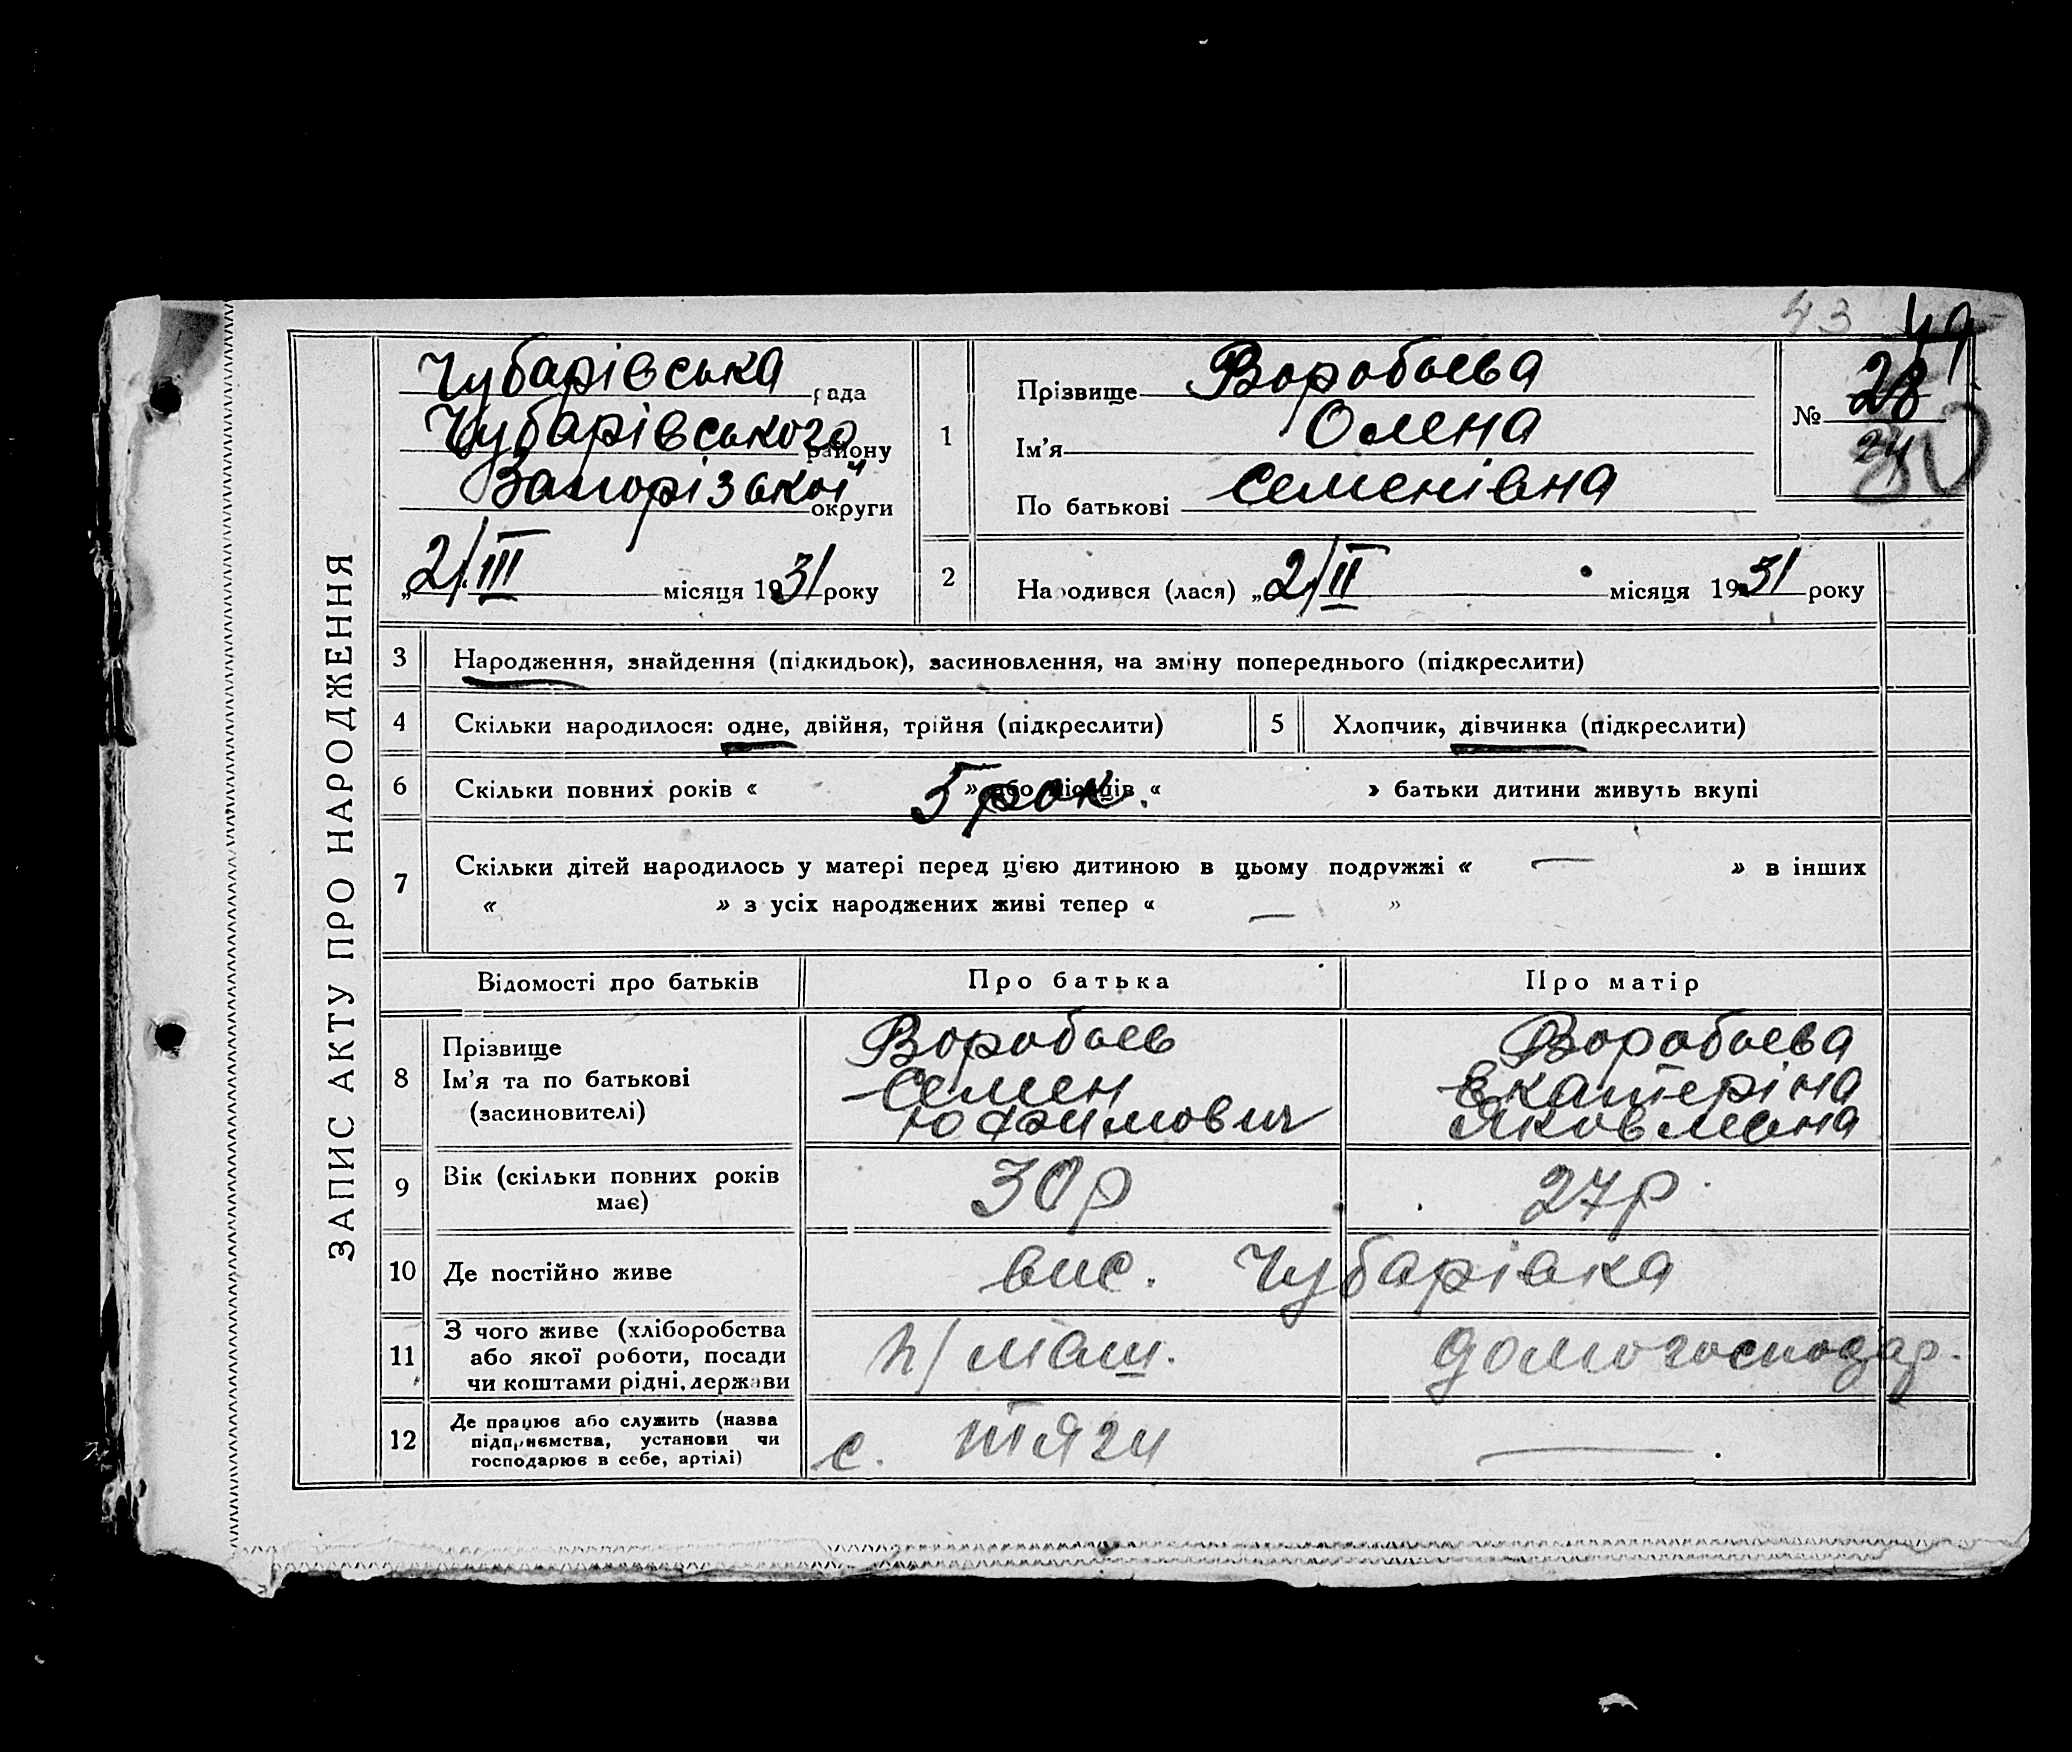 43 49
ЗАПИС АКТУ ПРО НАРОДЖЕННЯ
Чубарівська рада
Чубарівського району
Запорізької округи
„2/III місяця 1931 року
1
Прізвище Воробьева
Ім’я Олена
По батькові Семенівна
№ 28
24
2 Народився (лася) „2/II місяця 1931 року
3 Народження, знайдення (підкидьок), засиновлення, на зміну попереднього (підкреслити)
4 Скільки народилося: одне, двійня, трійня (підкреслити) 5 Хлопчик, дівчинка (підкреслити)
6 Скільки повних років « 5 рок. » або місяців « » батьки дитини живуть вкупі
7 Скільки дітей народилось у матері перед цією дитиною в цьому подружжі « — » в інших
« » з усіх народжених живі тепер « — »
Відомості про батьків Про батька Про матір
8 Прізвище Воробьев Воробьева
Ім’я та по батькові Семен Екатеріна
(засиновителі) Юхимович Яковлевна
9 Вік (скільки повних років має) 30 р 27 р.
10 Де постійно живе вис. Чубарівка
11 З чого живе (хліборобства або якої роботи, посади чи коштами рідні, держави п/маш. домогосподар.
12 Де працює або служить (назва підприємства, установи чи господарює в себе, артілі) с. тяги —